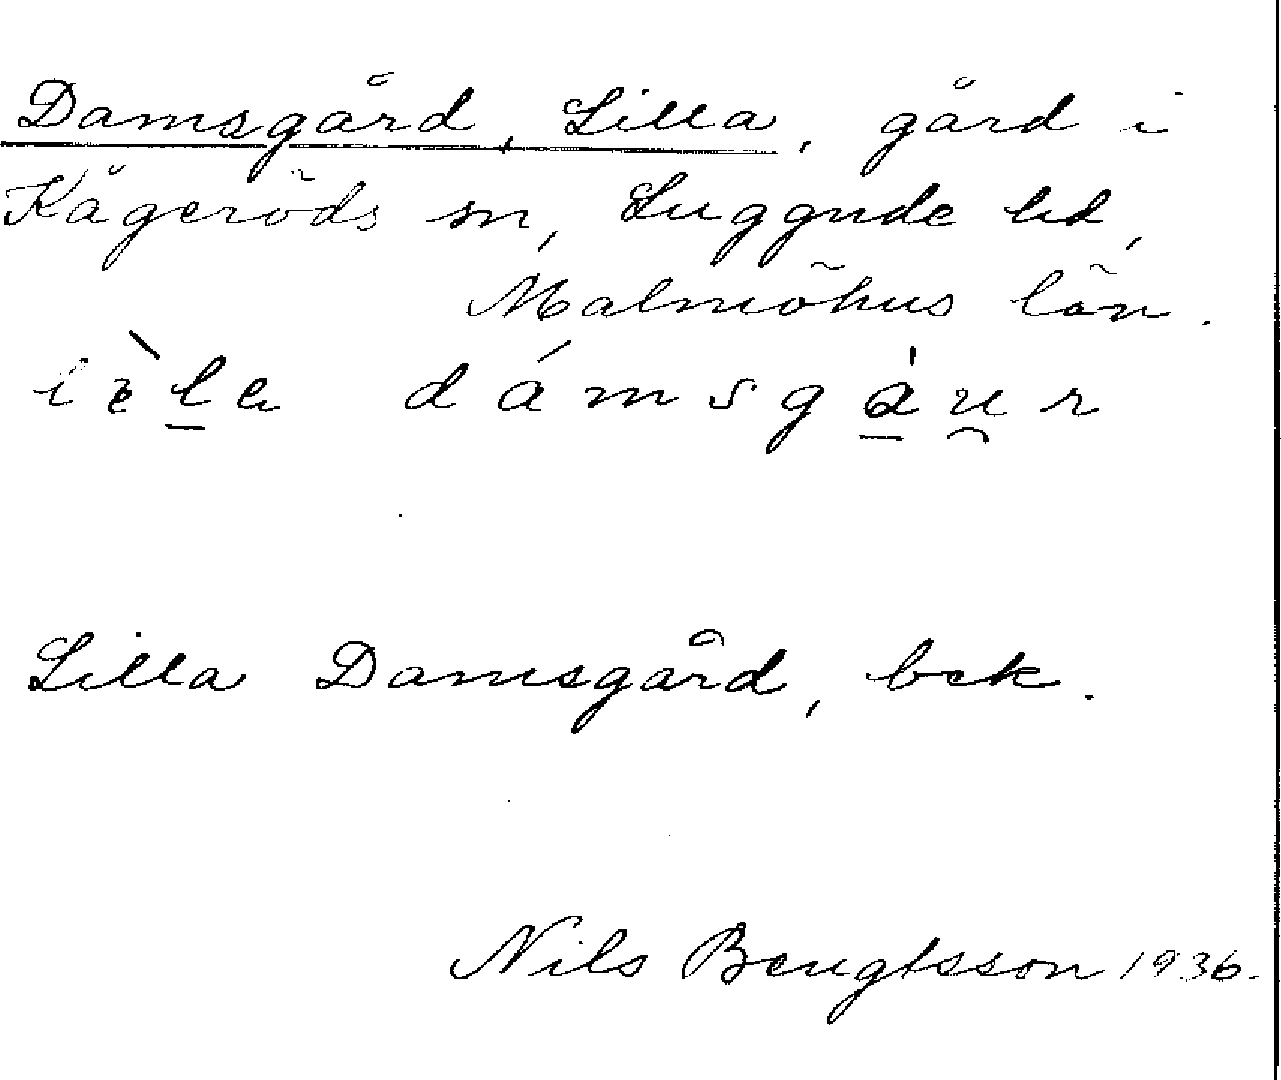 Damsgård, Lilla, gård i
Kågeröds sn, Luggude hd,
Malmöhus län.
dámsgàu̯r
Lilla Damsgård, bek.
Nils Bengtsson 1936.